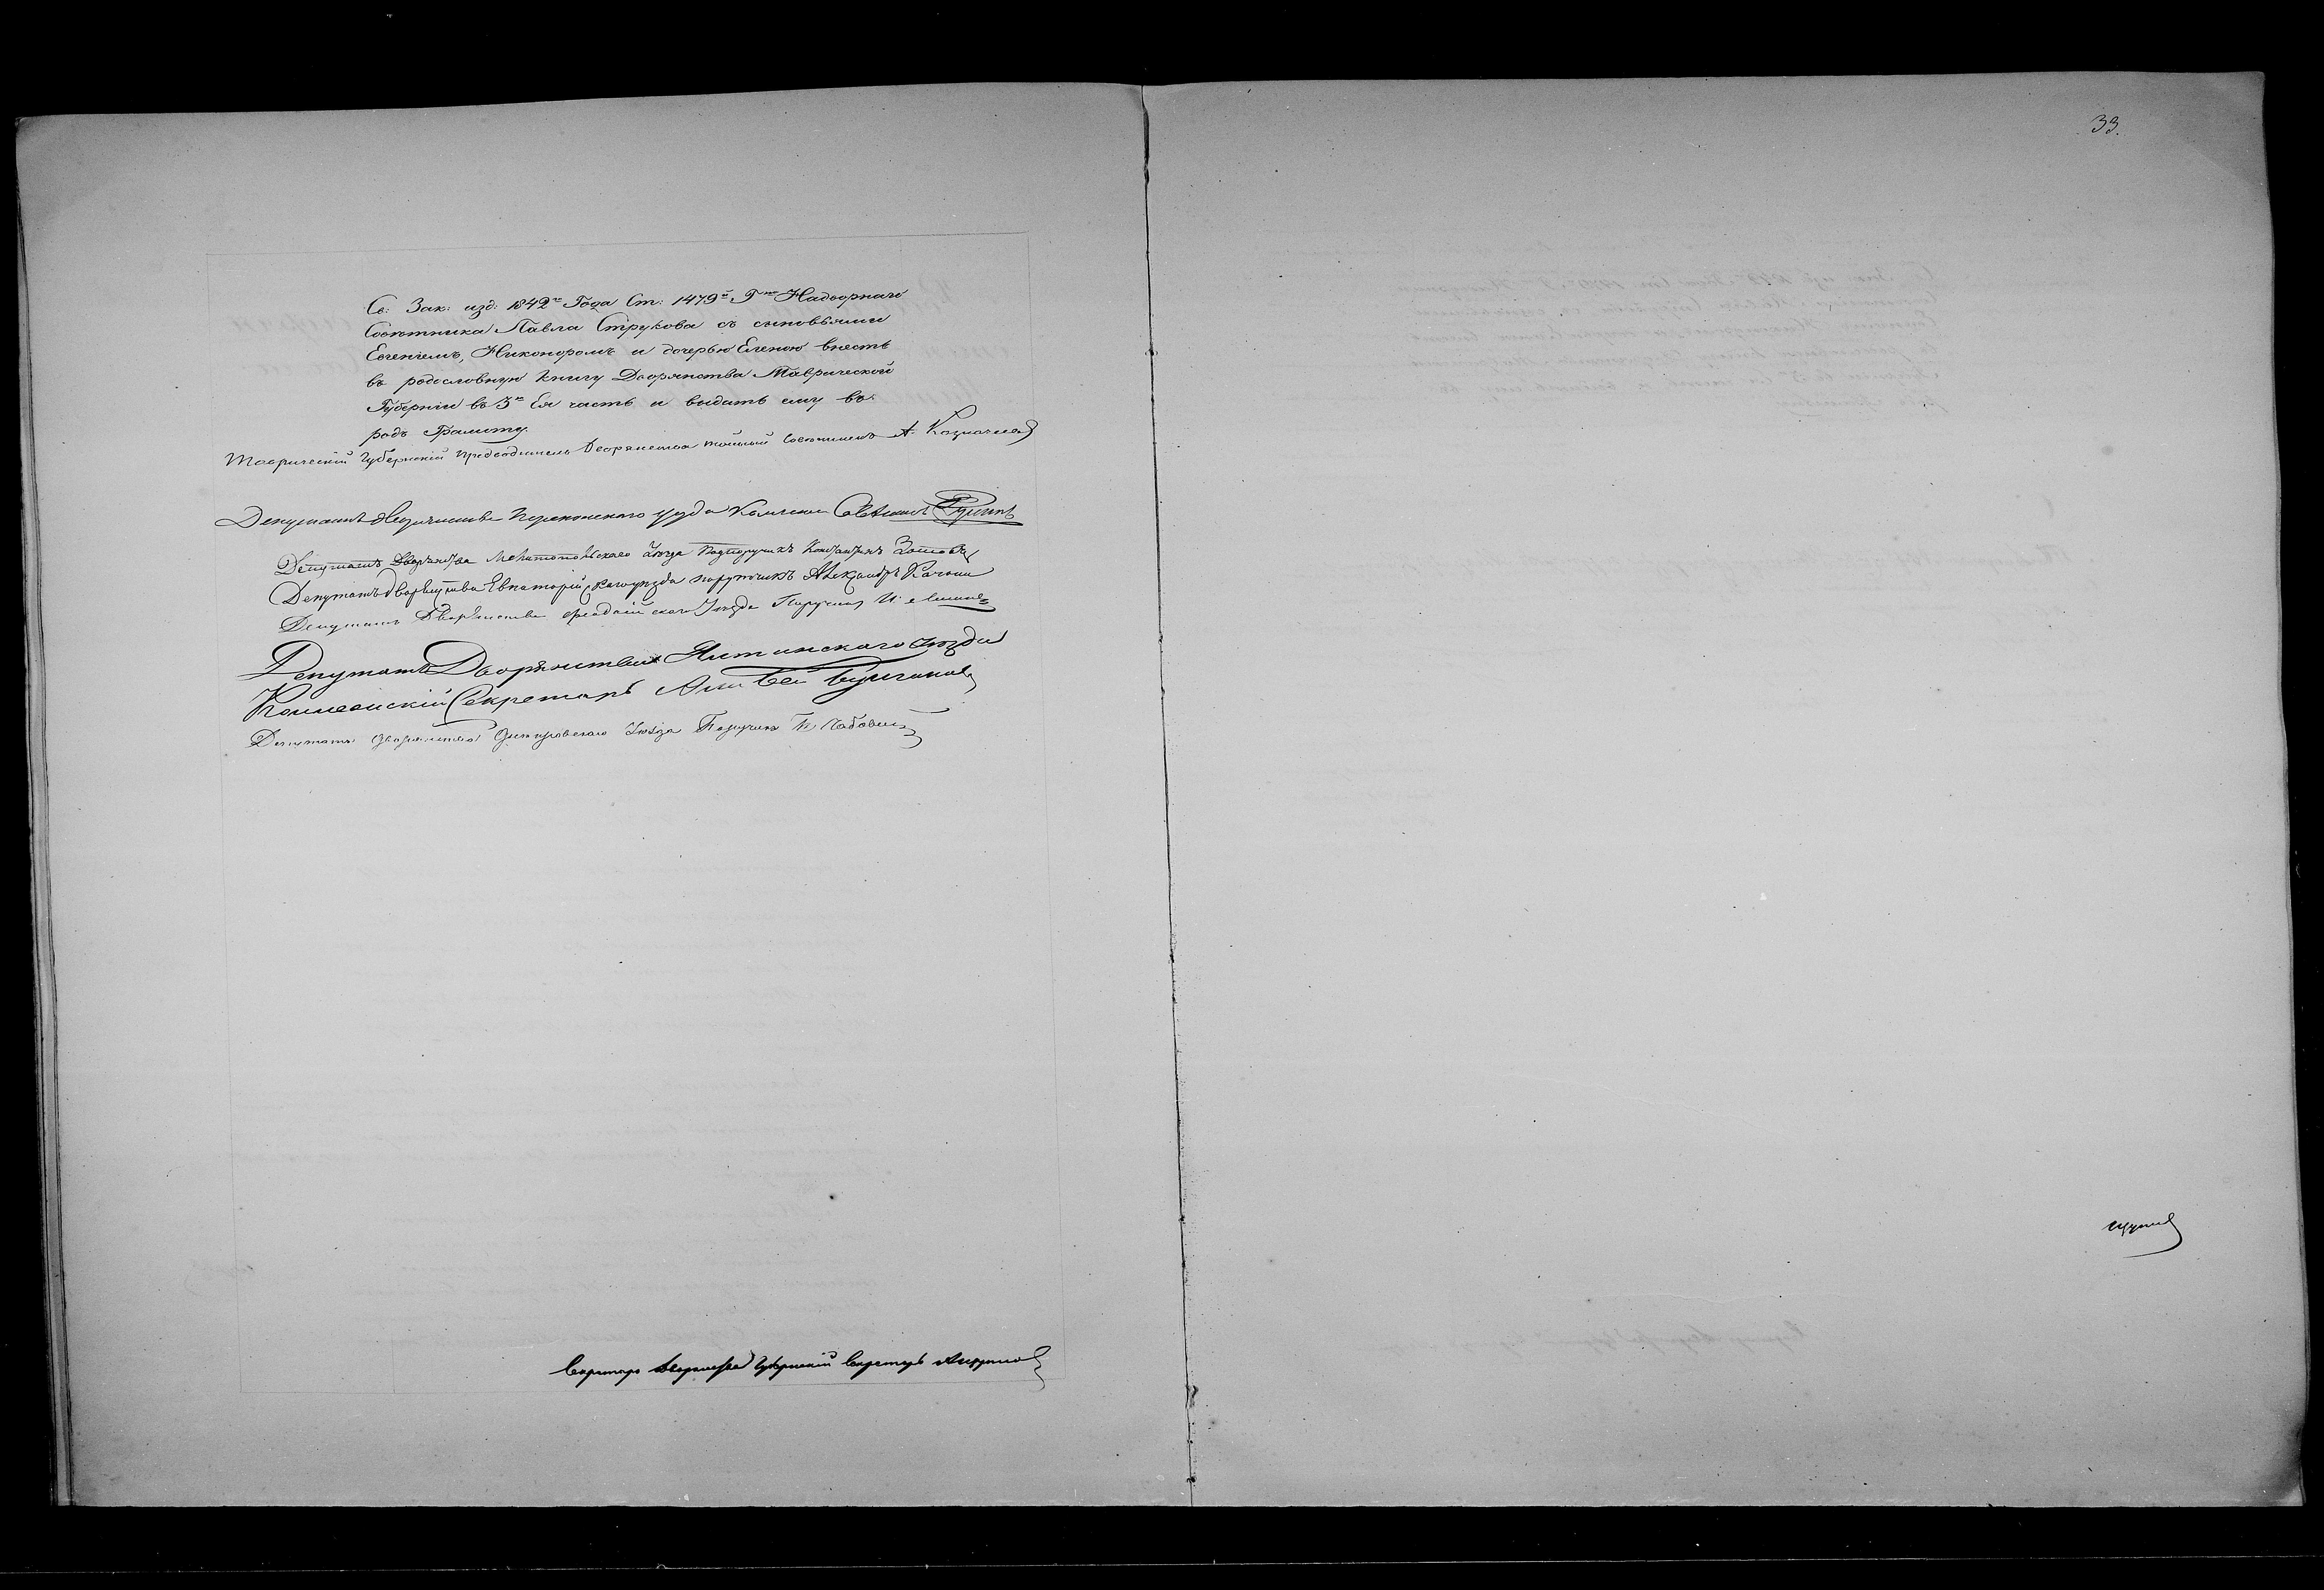 Св: Зак: изд: 1842го Года Ст: 1479й Гна Надворнаго
Совѣтника Павла Струкова съ сыновьями
Евгеніемъ, Никоноромъ и дочерью Еленою внесть
въ родословную книгу Дворянства Таврической
Губерніи въ 3ю Ея часть и выдать ему въ
родъ Грамоту.
Таврическій Губернскій Предводитель Дворянства тайный Совѣтникъ А. Казначеев
Депутатъ Дворянства Перекопскаго уезда
Депутатъ Дворянства Мелитопольскаго Уѣзда Подпоручикъ Константинъ
Депутатъ Дворянства Евпаторійскаго уѣзда поручикъ Александръ
Депутатъ Дворянства Феодосійскаго Уѣзда Поручикъ
Депутатъ Дворянства Ялтинскаго Уѣзда
Коллежскій Секретарь Али Бей Булгаковъ
Депутатъ дворянства Днѣпровскаго Уѣзда Поручикъ
Секретарь Дворянства Губернскій Секретарь
33.